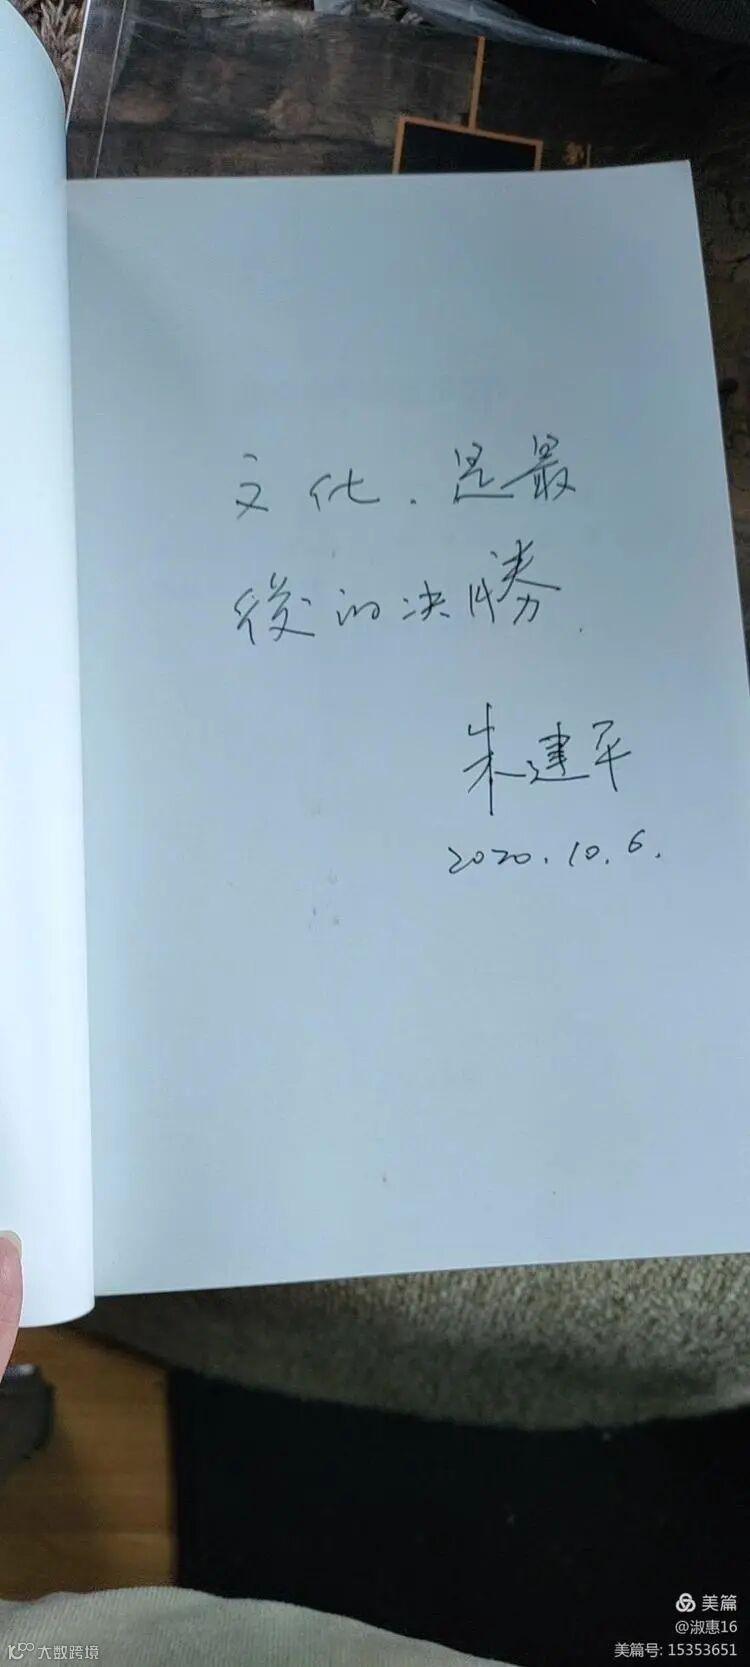 文化．是最
後的决勝．
朱建平
2020.10.6.
美篇
@淑惠16
美篇号: 15353651
大数跨境